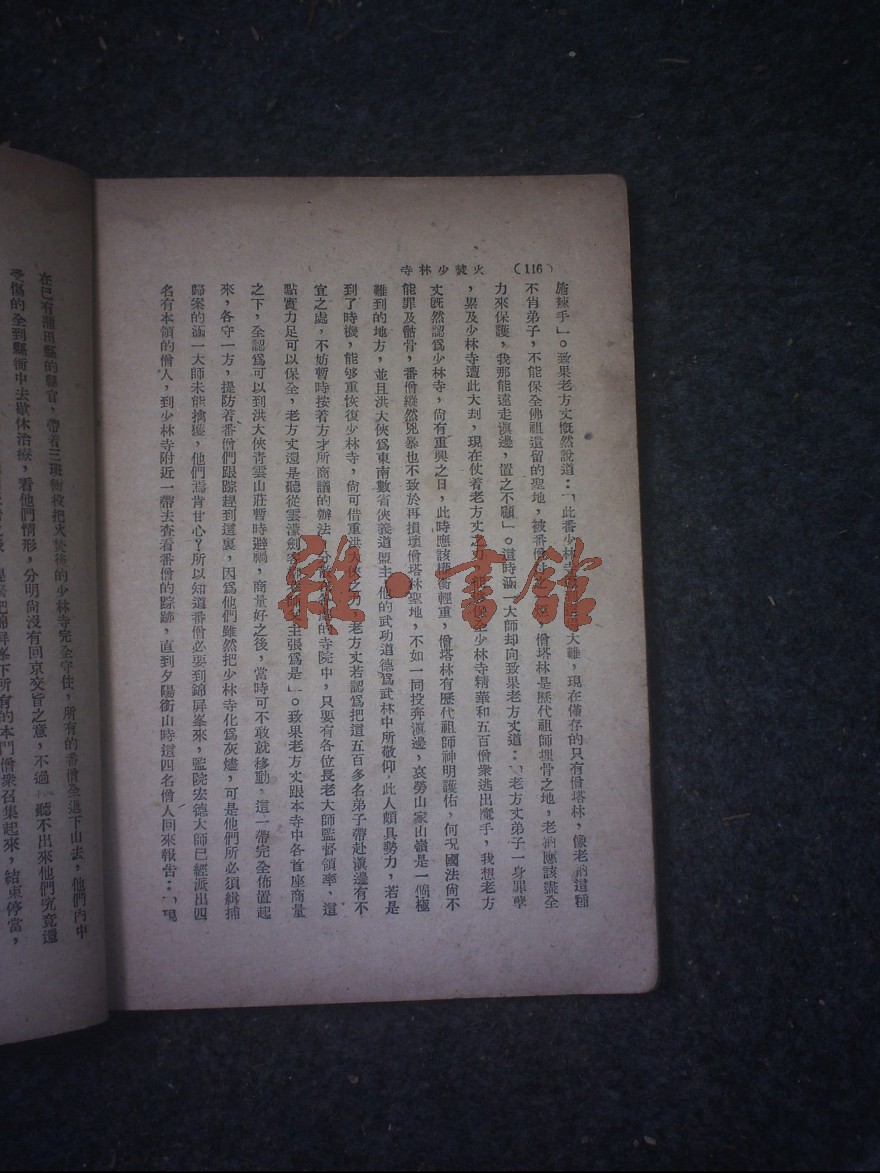 火焚少林寺
(116)
施辣手」。致果老方丈慨然說道:「此番少林寺大難,現在僅存的只有僧塔林,像老衲這種
不肖弟子,不能保全佛祖遺留的聖地,被番僧僧塔林是歷代祖師埋骨之地,老衲應該謀全
力來保護,我那能遠走滇邊,置之不顧」。這時涵一大師却向致果老方丈道:「老方丈弟子一身罪孽
,累及少林寺遭此大刼,現在仗着老方丈之保全少林寺精華和五百僧衆逃出魔手,我想老方
丈旣然認爲少林寺,尙有重興之日,此時應該權衡輕重,僧塔林有歷代祖師神明護佑,何况國法尙不
能罪及骸骨,番僧縱然兇暴也不致於再損壞僧塔林聖地,不如一同投奔滇邊,哀勞山家山嶺是一個極
難到的地方,並且洪大俠爲東南數省俠義道盟主,他的武功道德爲武林中所敬仰,此人頗具勢力,若是
到了時機,能够重恢復少林寺,尙可借重洪大俠之力,老方丈若認爲把這五百多名弟子帶赴滇邊有不
宜之處,不妨暫時按着方才所商議的辦法,分的寺院中,只要有各位長老大師監督領率,這
點實力足可以保全,老方丈還是聽從雲濛劍客主張爲是」。致果老方丈跟本寺中各首座商量
之下,全認爲可以到洪大俠青雲山莊暫時避禍,商量好之後,當時可不敢就移動,這一帶完全佈置起
來,各守一方,提防着番僧們跟踪趕到這裏,因爲他們雖然把少林寺化爲灰燼,可是他們所必須緝捕
歸案的涵一大師未能擒獲,他們焉肯甘心?所以知道番僧必要到錦屏峯來,監院宏德大師已經派出四
名有本領的僧人,到少林寺附近一帶去查看番僧的踪跡,直到夕陽銜山時這四名僧人回來報告:「現
在已有莆田縣的縣官,帶着三班衙役把火焚後的少林寺完全守住,所有的番僧全退下山去,他們內中
受傷的全到縣衙中去歇休治療,看他們情形,分明尙沒有回京交旨之意,不過聽不出來他們究竟還
把錦屏峯下所有的本門僧衆召集起來,結束停當,
雜·書館